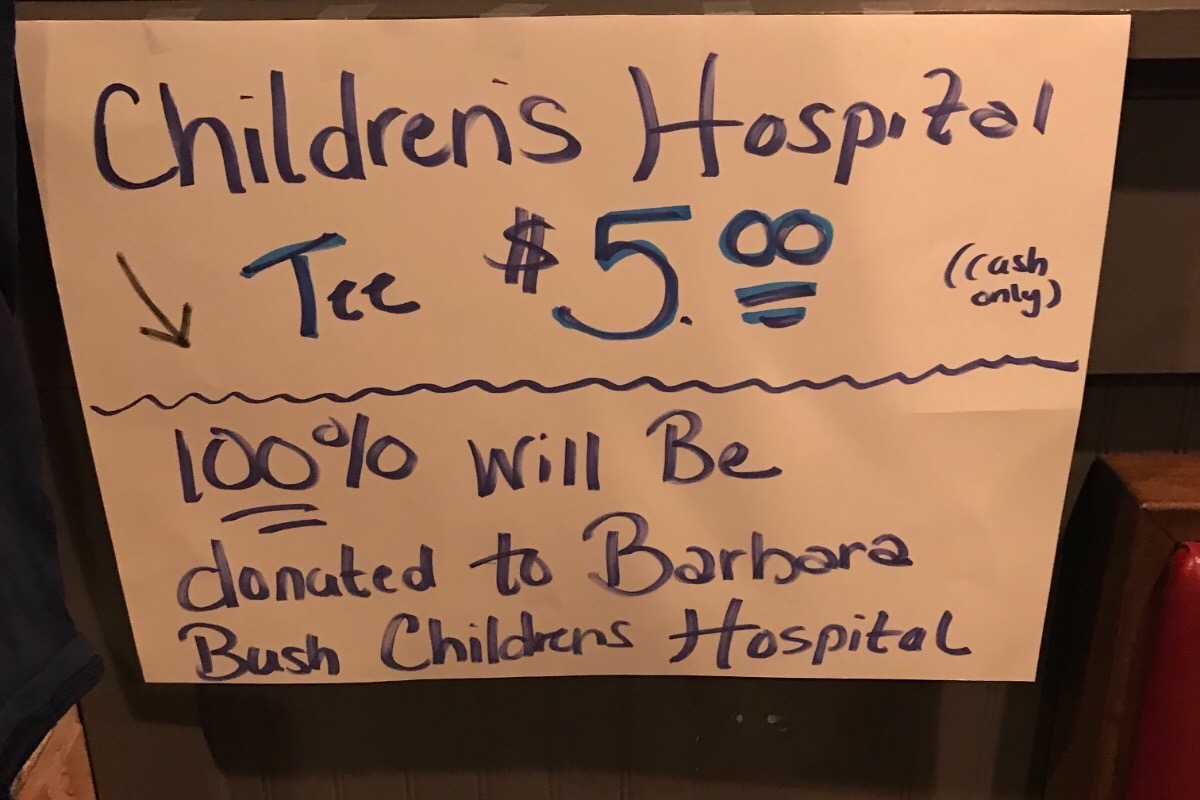 Children's Hospital
Tee $5.00 (Cash
only)
100% Will Be
donated to Barbara
Bush Childrens Hospital